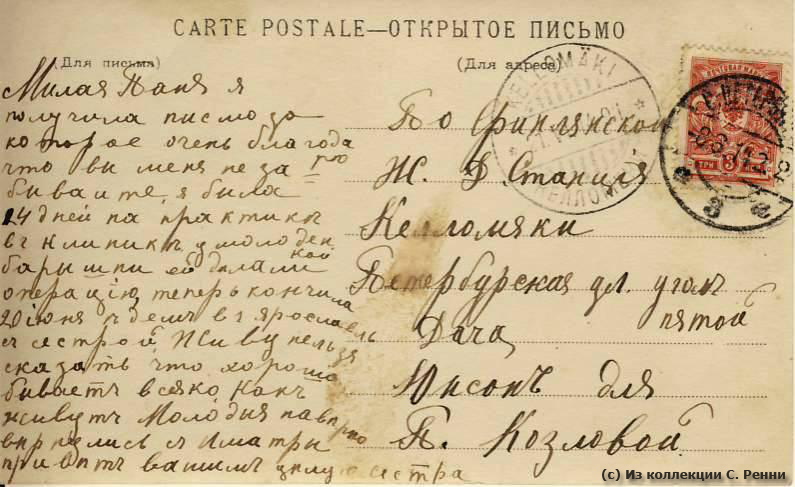 CARTE POSTALE—ОТКРЫТОЕ ПИСЬМО
(Для письма)
(Для адреса)
Милая Паня я
получила писмо за
которое очень благода
рю
что ви меня не за
бываите, я была
14 дней на практикѣ
въ клиникѣ у молодень
кой
барышни ей делали
операцiю теперь кончила
20 июня едемъ в г Ярославль
с сестрой Живу нельзя
сказать что хорошо
бываетъ всяко Какъ
живутъ Молодыя наверно
вернулись с Иматры
приветъ вашимъ целую сестра
По Финлянской
Ж. Д. Станцiя
Келломяки
Петербурская ул. уголъ
пятой
Дача
Юнсонъ для
П. Козловой
KELLOMÄKI
КЕЛЛОМЯКИ
ПОЧТОВАЯ МАРКА
ТРИ 3 КОП
С.ПЕТЕРБУРГЪ
(c) Из коллекции С. Ренни